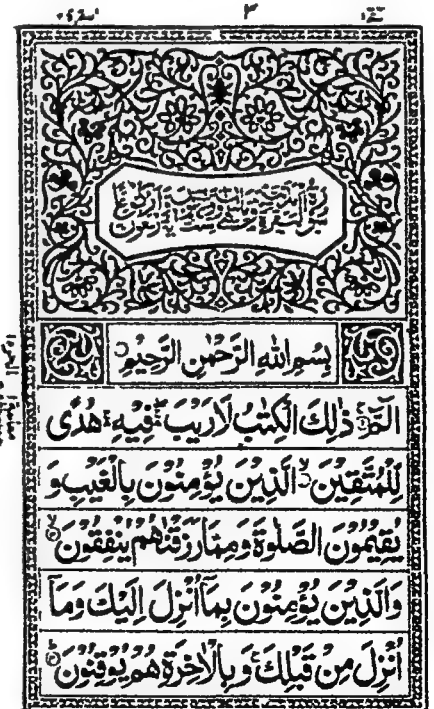 بِسْمِ اللهِ الرَّحْمٰنِ الرَّحِيْمِ
الٓمّٓ ۚ ذٰلِكَ الْكِتٰبُ لَا رَيْبَ ۛ فِيْهِ ۛ هُدًى
لِّلْمُتَّقِيْنَ ۙ الَّذِيْنَ يُؤْمِنُوْنَ بِالْغَيْبِ وَ
يُقِيْمُوْنَ الصَّلٰوةَ وَمِمَّا رَزَقْنٰهُمْ يُنْفِقُوْنَ ۙ
وَالَّذِيْنَ يُؤْمِنُوْنَ بِمَاۤ اُنْزِلَ اِلَيْكَ وَمَاۤ
اُنْزِلَ مِنْ قَبْلِكَ ۚ وَبِالْاٰخِرَةِ هُمْ يُوْقِنُوْنَ ؕ